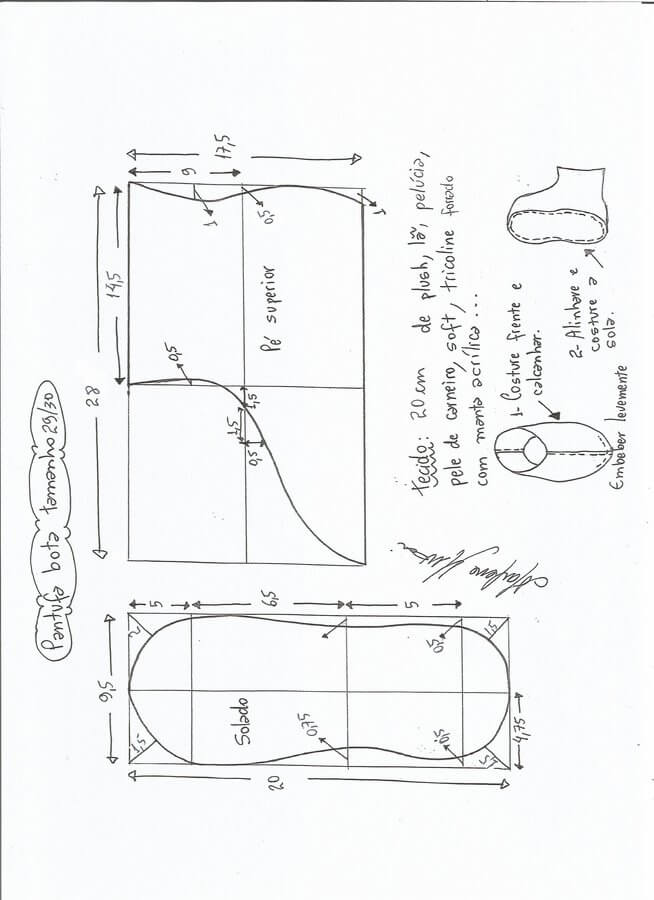 Pantufa bota tamanho 29/30
28
14,5
17,5
9
1
0,5
1
Pé superior
0,5
1,5
7,5
9,5
5
6,5
5
2
1,5
Solado
0,75
0,5
0,5
1,5
1,5
4,75
20
Tecido: 20 cm de plush, lã, pelúcia,
pele de carneiro, soft, tricoline forrado
com manta acrílica...
Marlene Mukai
1- Costure frente e
calcanhar.
2- Alinhave e
costure a
sola.
Embeber levemente